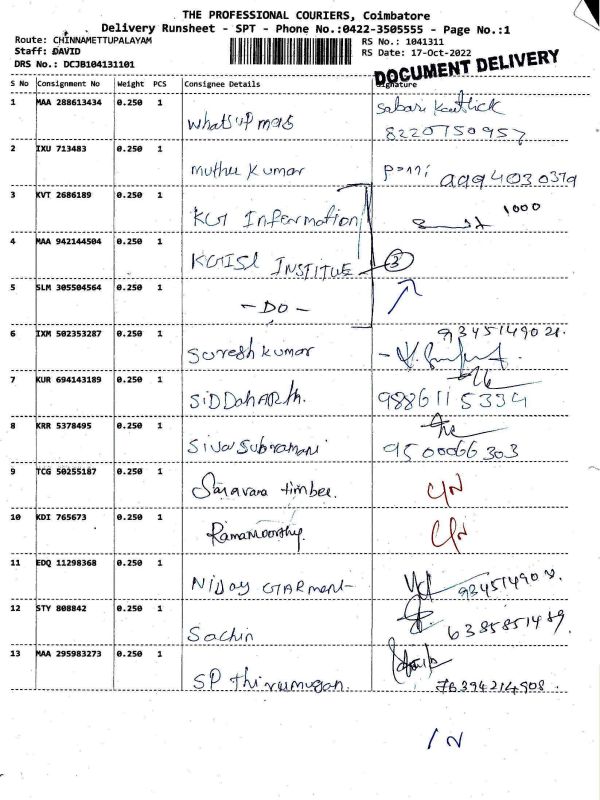 THE PROFESSIONAL COURIERS, Coimbatore
Delivery Runsheet - SPT - Phone No.:0422-3505555 - Page No.:1
Route: CHINNAMETTUPALAYAM
Staff: DAVID
DRS No.: DCJB104131101
RS No.: 1041311
RS Date: 17-Oct-2022
DOCUMENT DELIVERY
S No Consignment No Weight PCS Consignee Details Signature
1 MAA 288613434 0.250 1 whatsup mens 8220750957
2 IXU 713483 0.250 1 muthu kumar 9994030379
3 KVT 2686189 0.250 1 KGI Information 1000
4 MAA 942144504 0.250 1 KGISL INSTITUE 3
5 SLM 305504564 0.250 1 - DO -
6 IXM 502353287 0.250 1 Suresh kumar
7 KUR 694143189 0.250 1 SIDDohARth. 9886115334
8 KRR 5378495 0.250 1 Sivasubramani 9500066303
9 TCG 50255187 0.250 1 Saravana timber.
10 KDI 765673 0.250 1 RamaMoorthy
11 EDQ 11298368 0.250 1
12 STY 808842 0.250 1 Sachin 6385851489.
13 MAA 295983273 0.250 1 SP thirumugan. 76394214908.